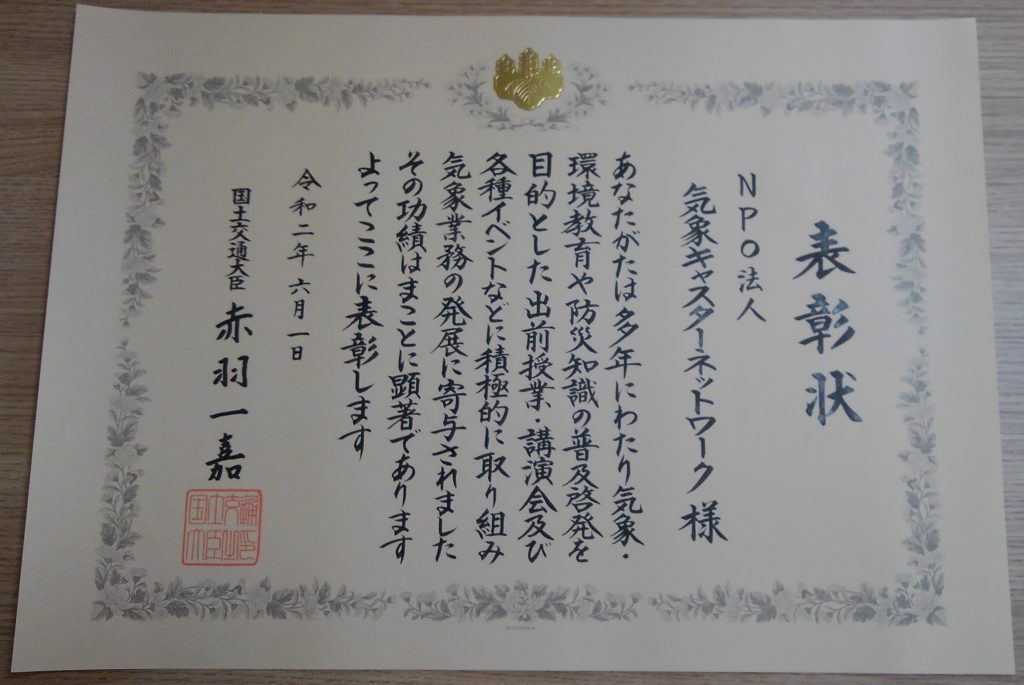 表彰状
NPO法人
気象キャスターネットワーク様
あなたがたは多年にわたり気象・
環境教育や防災知識の普及啓発を
目的とした出前授業・講演会及び
各種イベントなどに積極的に取り組み
気象業務の発展に寄与されました
その功績はまことに顕著であります
よってここに表彰します
令和二年六月一日
国土交通大臣
赤羽一嘉